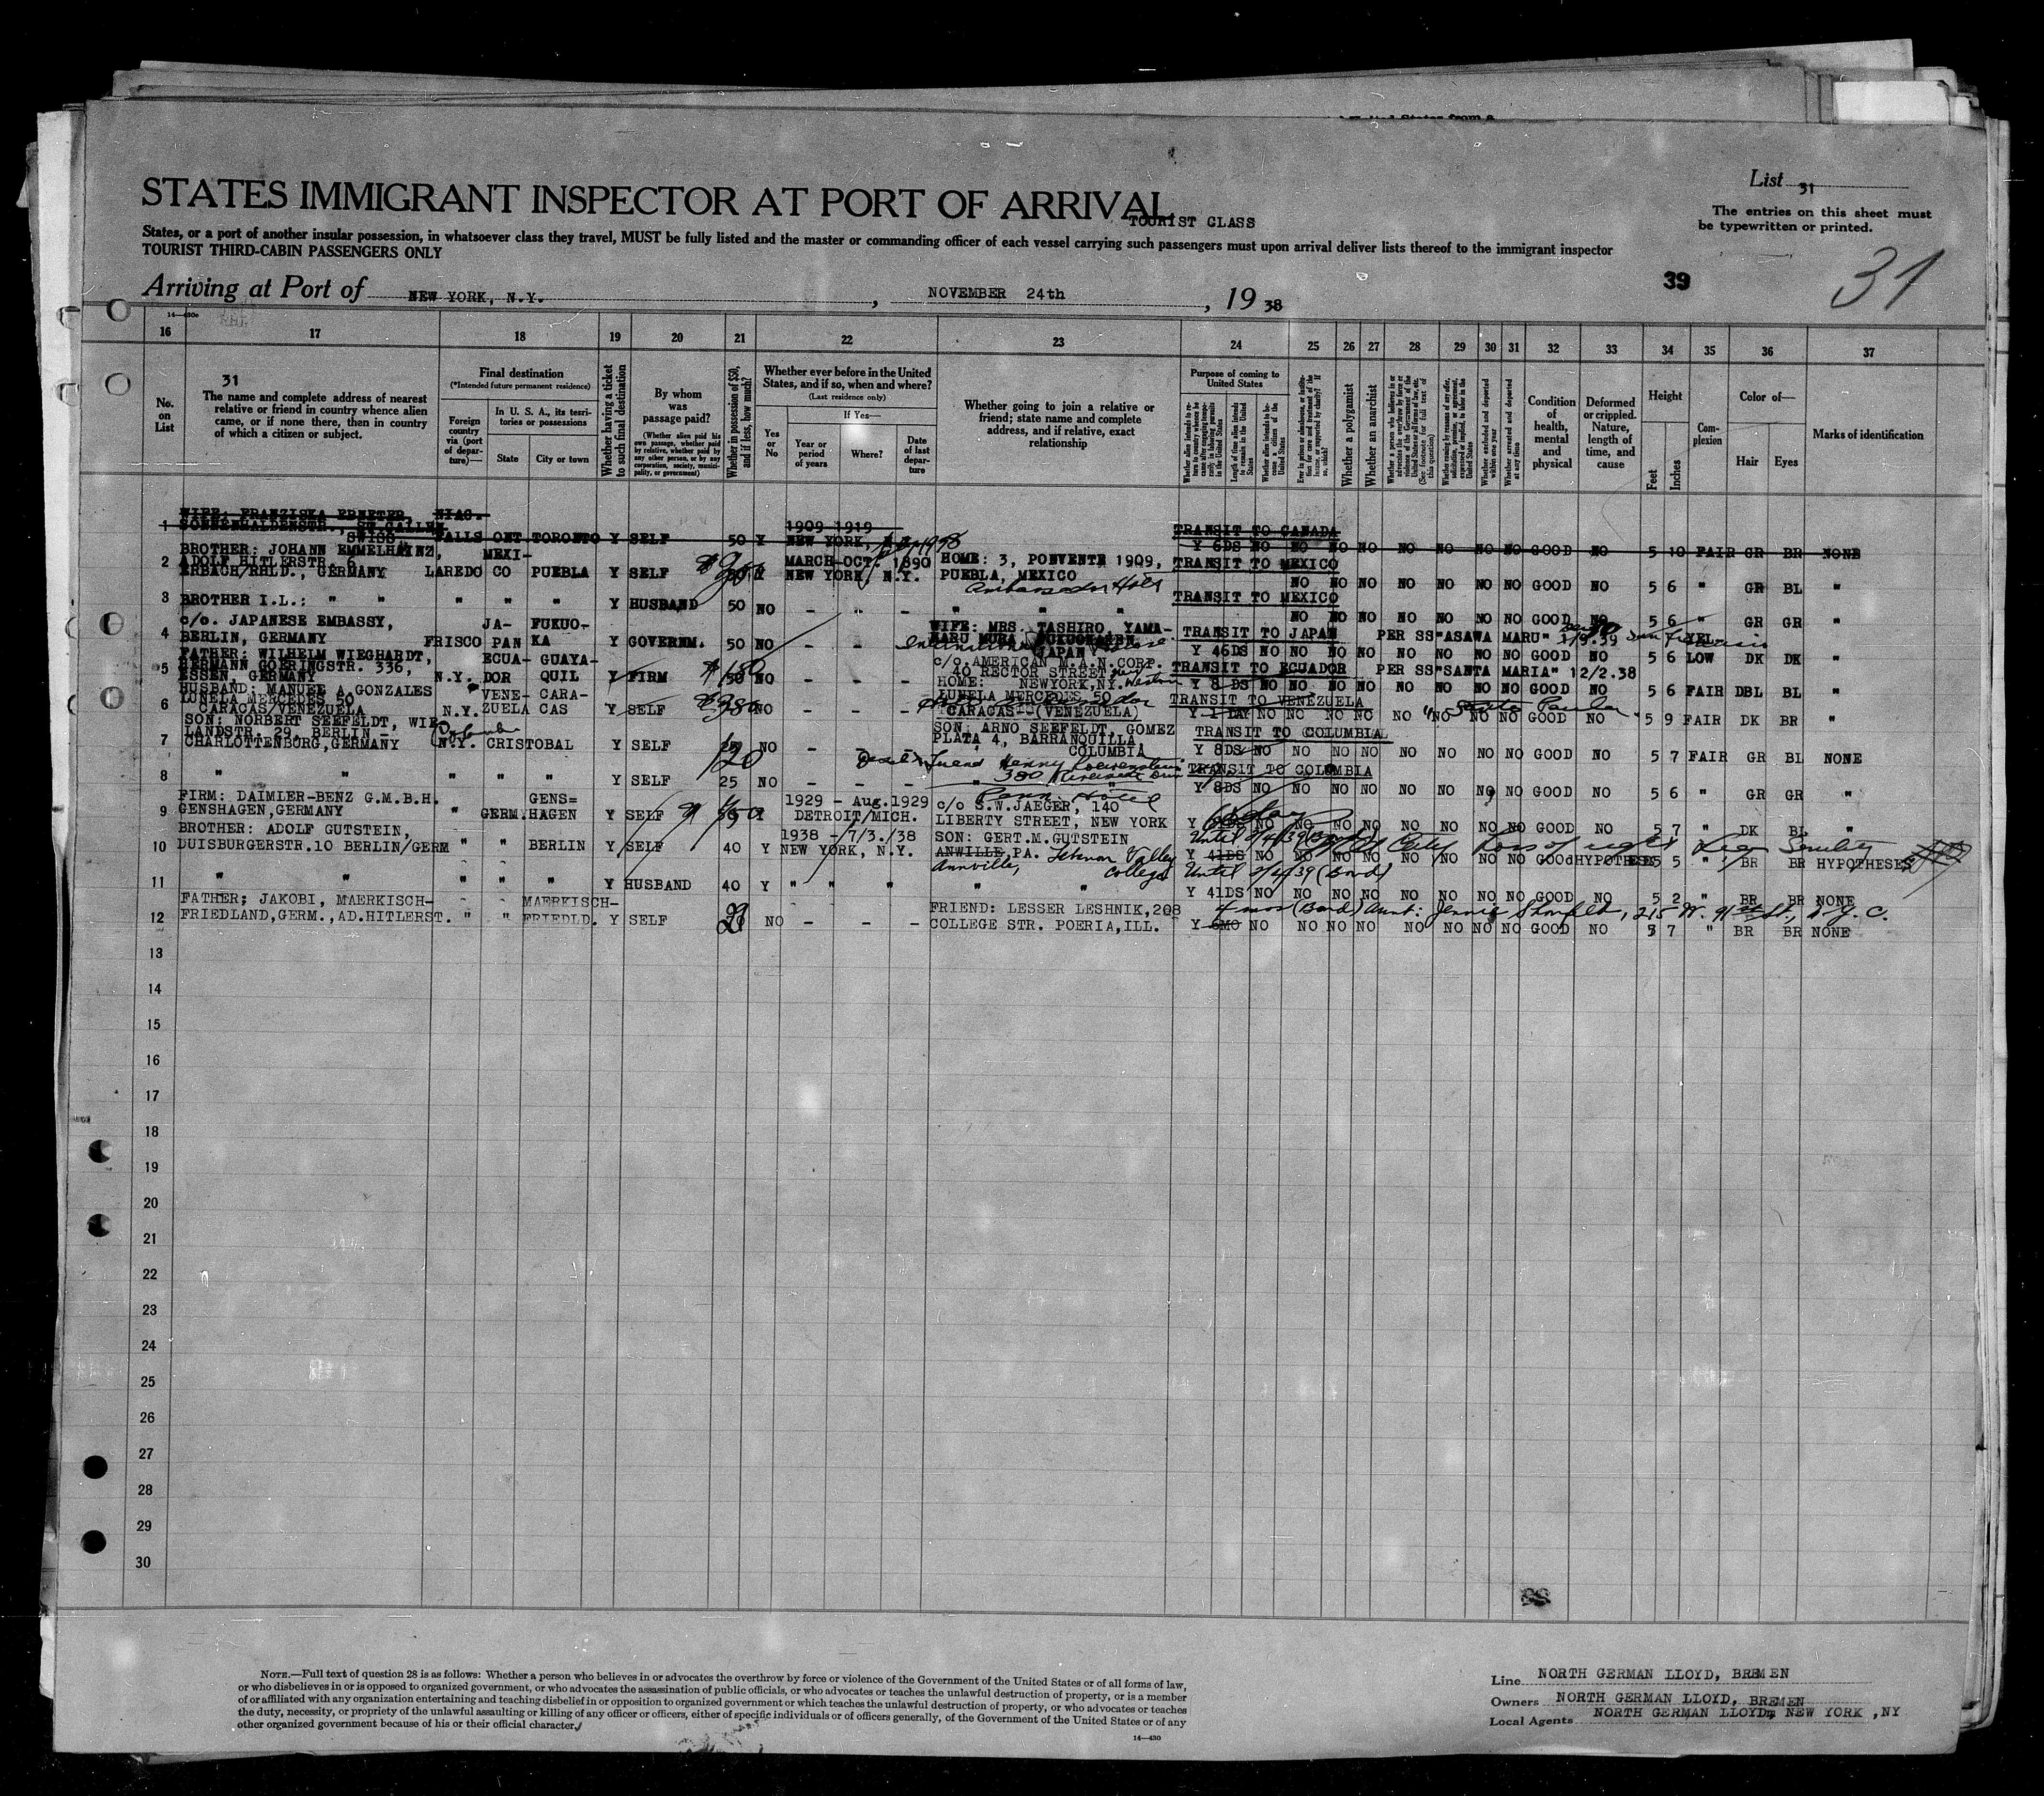 STATES IMMIGRANT INSPECTOR AT PORT OF ARRIVAL
TOURIST CLASS
List 31
The entries on this sheet must
be typewritten or printed.
States, or a port of another insular possession, in whatsoever class they travel, MUST be fully listed and the master or commanding officer of each vessel carrying such passengers must upon arrival deliver lists thereof to the immigrant inspector
TOURIST THIRD-CABIN PASSENGERS ONLY
39
31
Arriving at Port of NEW YORK, N.Y. , NOVEMBER 24th , 19 38
16 17 18 19 20 21 22 23 24 25 26 27 28 29 30 31 32 33 34 35 36 37
No. on List
31
The name and complete address of nearest
relative or friend in country whence alien
came, or if none there, then in country
of which a citizen or subject.
Final destination
(*Intended future permanent residence)
Foreign country via (port of departure)—
In U. S. A., its territories or possessions
State
City or town
Whether having a ticket to such final destination
By whom was passage paid?
(Whether alien paid his own passage, whether paid by relative, whether paid by any other person, or by any corporation, society, municipality, or government)
Whether in possession of $50, and if less, how much?
Whether ever before in the United States, and if so, when and where?
(Last residence only)
Yes or No
If Yes—
Year or period of years
Where?
Date of last departure
Whether going to join a relative or
friend; state name and complete
address, and if relative, exact
relationship
Purpose of coming to United States
Whether a polygamist
Whether an anarchist
Condition of health, mental and physical
Deformed or crippled. Nature, length of time, and cause
Height
Feet
Inches
Complexion
Color of—
Hair
Eyes
Marks of identification
1 WIFE: FRANZISKA EBNETER, NIAG.
SONNENHALDENSTR., ST.GALLEN 1909 1919 TRANSIT TO CANADA
SWISS FALLS ONT TORONTO Y SELF 50 Y NEW YORK,
Y 6DS NO NO NO NO NO NO NO NO GOOD NO 5 10 FAIR GR BR NONE
2 BROTHER: JOHANN EMMELHAINZ, MEXI- MARCH-OCT. 1890 HOME: 3, PONVENTE 1909, TRANSIT TO MEXICO
ADOLF HITLERSTR. 6
ERBACH/RHLD., GERMANY LAREDO CO PUEBLA Y SELF NEW YORK, N.Y. PUEBLA, MEXICO
Ambassador Hotel
NO NO NO NO NO NO NO GOOD NO 5 6 " GR BL "
3 BROTHER I.L.: " " " " " Y HUSBAND 50 NO - " - " " " TRANSIT TO MEXICO
NO NO NO NO NO NO NO GOOD NO 5 6 " GR GR "
4 c/o. JAPANESE EMBASSY, JA- FUKUO- WIFE: MRS. TASHIRO, YAMA-
BERLIN, GERMANY FRISCO PAN KA Y GOVERNM. 50 NO - - - TRANSIT TO JAPAN PER SS"ASAWA MARU" 1/9.39
JAPAN
Y 46DS NO NO NO NO NO NO NO NO GOOD NO 5 6 YELLOW DK DK "
5 FATHER: WILHELM WIEGHARDT, ECUA- GUAYA- c/o AMERICAN M.A.N.CORP.
HERMANN GOERINGSTR. 336, 40 RECTOR STREET TRANSIT TO ECUADOR PER SS"SANTA MARIA" 12/2.38
ESSEN, GERMANY N.Y. DOR QUIL Y FIRM $150 NO - - - NEWYORK,NY.
Y 8 DS NO NO NO NO NO NO NO NO GOOD NO 5 6 FAIR DBL BL "
6 HUSBAND: MANUEL A.GONZALES VENE- CARA- HOME:
LUNELA MERCEDES 50 LUNELA MERCEDES 50 TRANSIT TO VENEZUELA
CARACAS/VENEZUELA N.Y. ZUELA CAS Y SELF NO - - - CARACAS (VENEZUELA)
Y 1 DAY NO NO NO NO NO NO NO NO GOOD NO 5 9 FAIR DK BR "
7 SON: NORBERT SEEFELDT, WIE- SON: ARNO SEEFELDT, GOMEZ TRANSIT TO COLUMBIA
LANDSTR. 29, BERLIN - PLATA 4, BARRANQUILLA
CHARLOTTENBURG,GERMANY N.Y. CRISTOBAL Y SELF 120 NO - - COLUMBIA
Y 8DS NO NO NO NO NO NO NO NO GOOD NO 5 7 FAIR GR BL NONE
friend Henny Loewenstein
380 Riverside Drive
8 " " " " " Y SELF 25 NO - - - TRANSIT TO COLOMBIA
Y 8DS NO NO NO NO NO NO NO NO GOOD NO 5 6 " GR GR "
Penn. Hotel
9 FIRM: DAIMLER-BENZ G.M.B.H. GENS= 1929 - Aug.1929 c/o S.W.JAEGER, 140
GENSHAGEN,GERMANY " GERM.HAGEN Y SELF Y DETROIT/MICH. LIBERTY STREET, NEW YORK
NO NO NO NO NO NO NO NO GOOD NO 5 7 " DK BL "
10 BROTHER: ADOLF GUTSTEIN, 1938 -/7/3./38 SON: GERT.M.GUTSTEIN
DUISBURGERSTR.10 BERLIN/GERM " " BERLIN Y SELF 40 Y NEW YORK, N.Y. ANWILLE,PA. Lebanon Valley
Annville, College
Y 41DS NO NO NO NO NO NO NO NO GOOD HYPOTHESE 5 5 " BR BR HYPOTHESES
11 " " " " " Y HUSBAND 40 Y " " " " "
Y 41DS NO NO NO NO NO NO NO NO GOOD NO 5 2 " BR BR NONE
12 FATHER; JAKOBI, MAERKISCH- MAERKISCH- FRIEND: LESSER LESHNIK,208 4 mos (Bond) Aunt: Jennie Shonfeld, 215 W. 91st St., N.Y.C.
FRIEDLAND,GERM.,AD.HITLERST. " " FRIEDLD. Y SELF NO - - - COLLEGE STR. POERIA,ILL.
Y 6MO NO NO NO NO NO NO NO NO GOOD NO 5 7 " BR BR NONE
13
14
15
16
17
18
19
20
21
22
23
24
25
26
27
28
29
30
NOTE.—Full text of question 28 is as follows: Whether a person who believes in or advocates the overthrow by force or violence of the Government of the United States or of all forms of law,
or who disbelieves in or is opposed to organized government, or who advocates the assassination of public officials, or who advocates or teaches the unlawful destruction of property, or is a member
of or affiliated with any organization entertaining and teaching disbelief in or opposition to organized government or which teaches the unlawful destruction of property, or who advocates or teaches
the duty, necessity, or propriety of the unlawful assaulting or killing of any officer or officers, either of specific individuals or of officers generally, of the Government of the United States or of any
other organized government because of his or their official character.
14—430
Line NORTH GERMAN LLOYD, BREMEN
Owners NORTH GERMAN LLOYD, BREMEN
Local Agents NORTH GERMAN LLOYD, NEW YORK ,NY